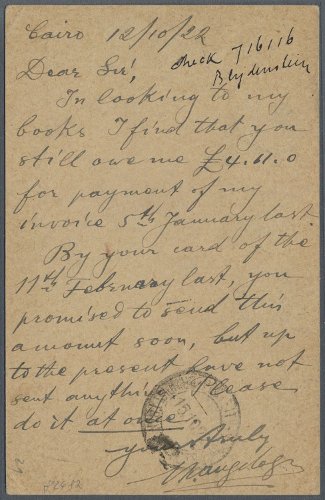 Cairo 12/10/22
check 7/6/16
Blydenstein
Dear Sir,
In looking to my
books I find that you
still owe me £4.11.0
for payment of my
invoice 5th January last.
By your card of the
11th February last, you
promised to send this
amount soon, but up
to the present have not
sent anything. Please
do it at once
yours truly